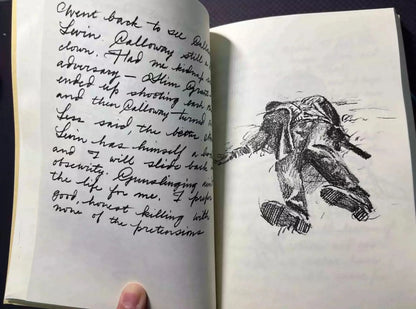 went back to see
Levin. Calloway still a
clown. Had me kidnap
adversary – Slim
ended up shooting each
and then Calloway turned
Less said, the better
Levin has himself a
and I will slide back
obscurity. Gunslinging
the life for me. I
good, honest killing with
none of the pretensions